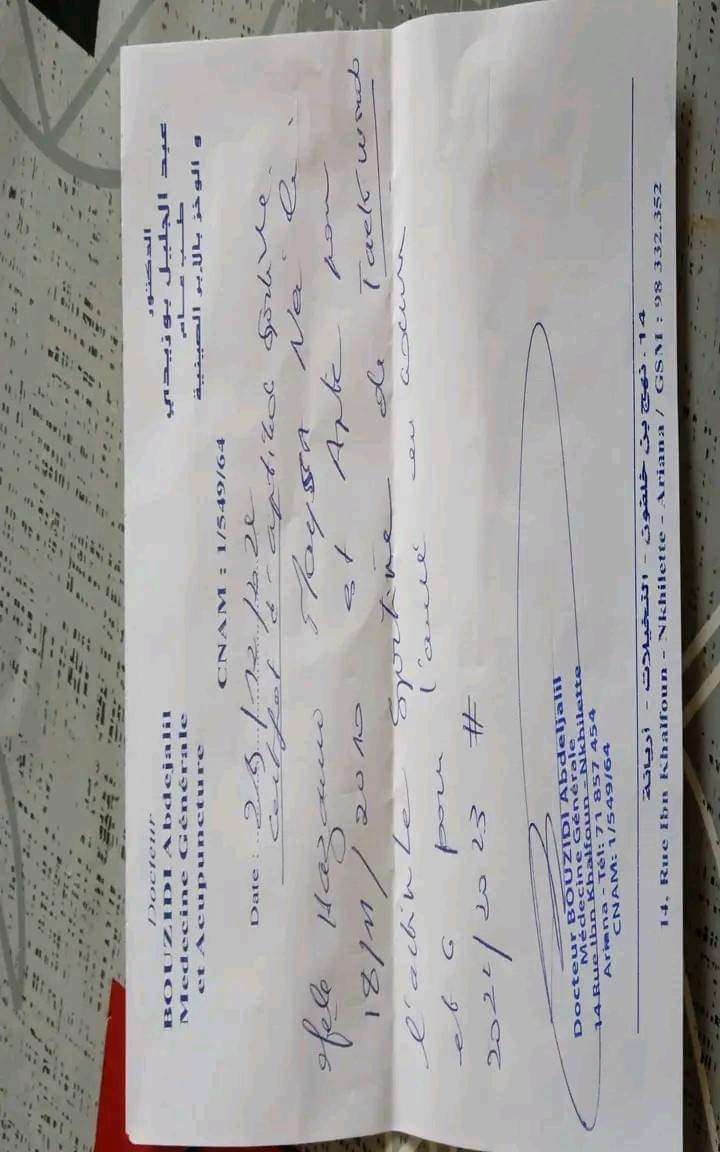 Docteur
BOUZIDI Abdejalil
Médecine Générale
et Acupuncture
الدكتور
عبد الجليل بوزيدي
طب عام
و الوخز بالإبر الصينية
CNAM : 1/549/64
Date :
d'aptitude sportive
18/11/2010 et Apte pour
l'activité sportive de Taekwondo
et pour l'année en cours
2023 #
Docteur BOUZIDI Abdeljalil
Médecine Générale
14 Rue Ibn Khalfoun - Nkhilette
Ariana - Tél: 71 857 454
CNAM: 1/549/64
14، نهج بن خلفون - النخيلات - أريانة
14, Rue Ibn Khalfoun - Nkhilette - Ariana / GSM : 98 332.352